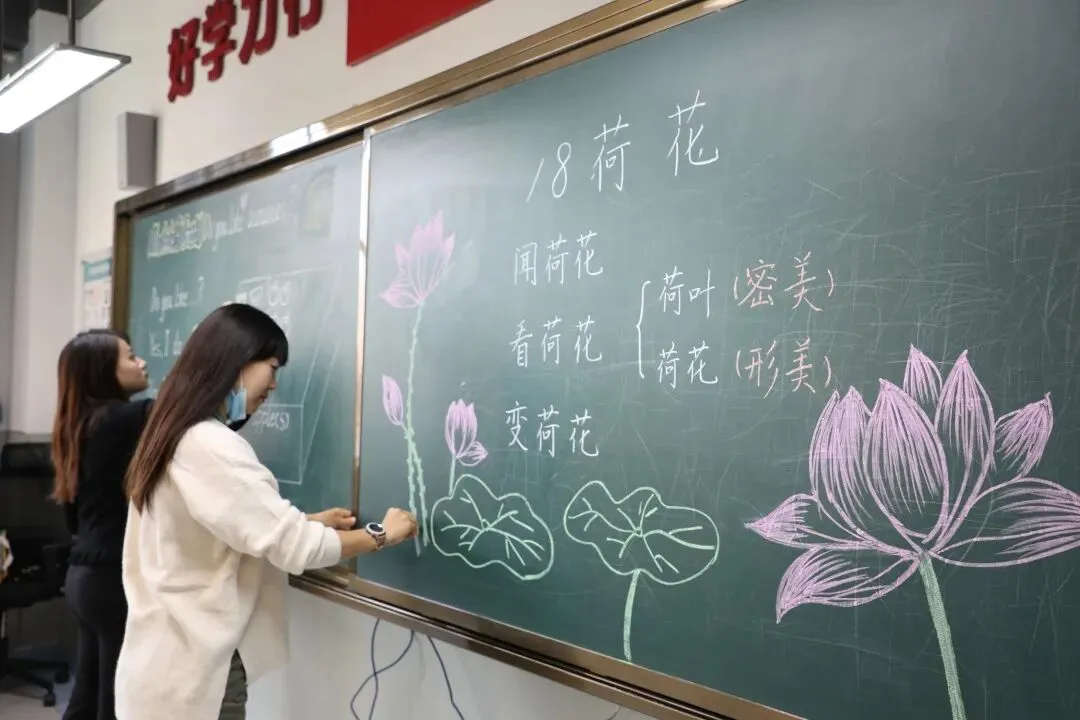 好学力行
Do you like bananas
Do you like ...?
Yes, I do
18 荷花
闻荷花
看荷花
荷叶(密美)
荷花(形美)
变荷花